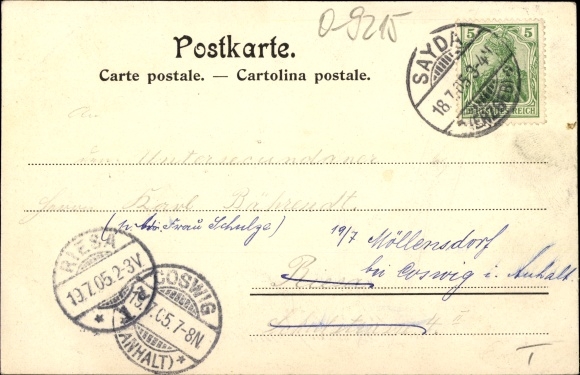 O-9215
Postkarte.
Carte postale. — Cartolina postale.
5 5
SAYDA
18.7.05.3-4
REICH
An
den Untersecundaner
Herrn Karl Bährendt.
(Frau Schulze) 19/7 Möllensdorf
bei Coswig i. Anhalt.
Riesa
RIESA
19.7.05.2-3V.
COSWIG
.05.7-8N
(ANHALT)
I